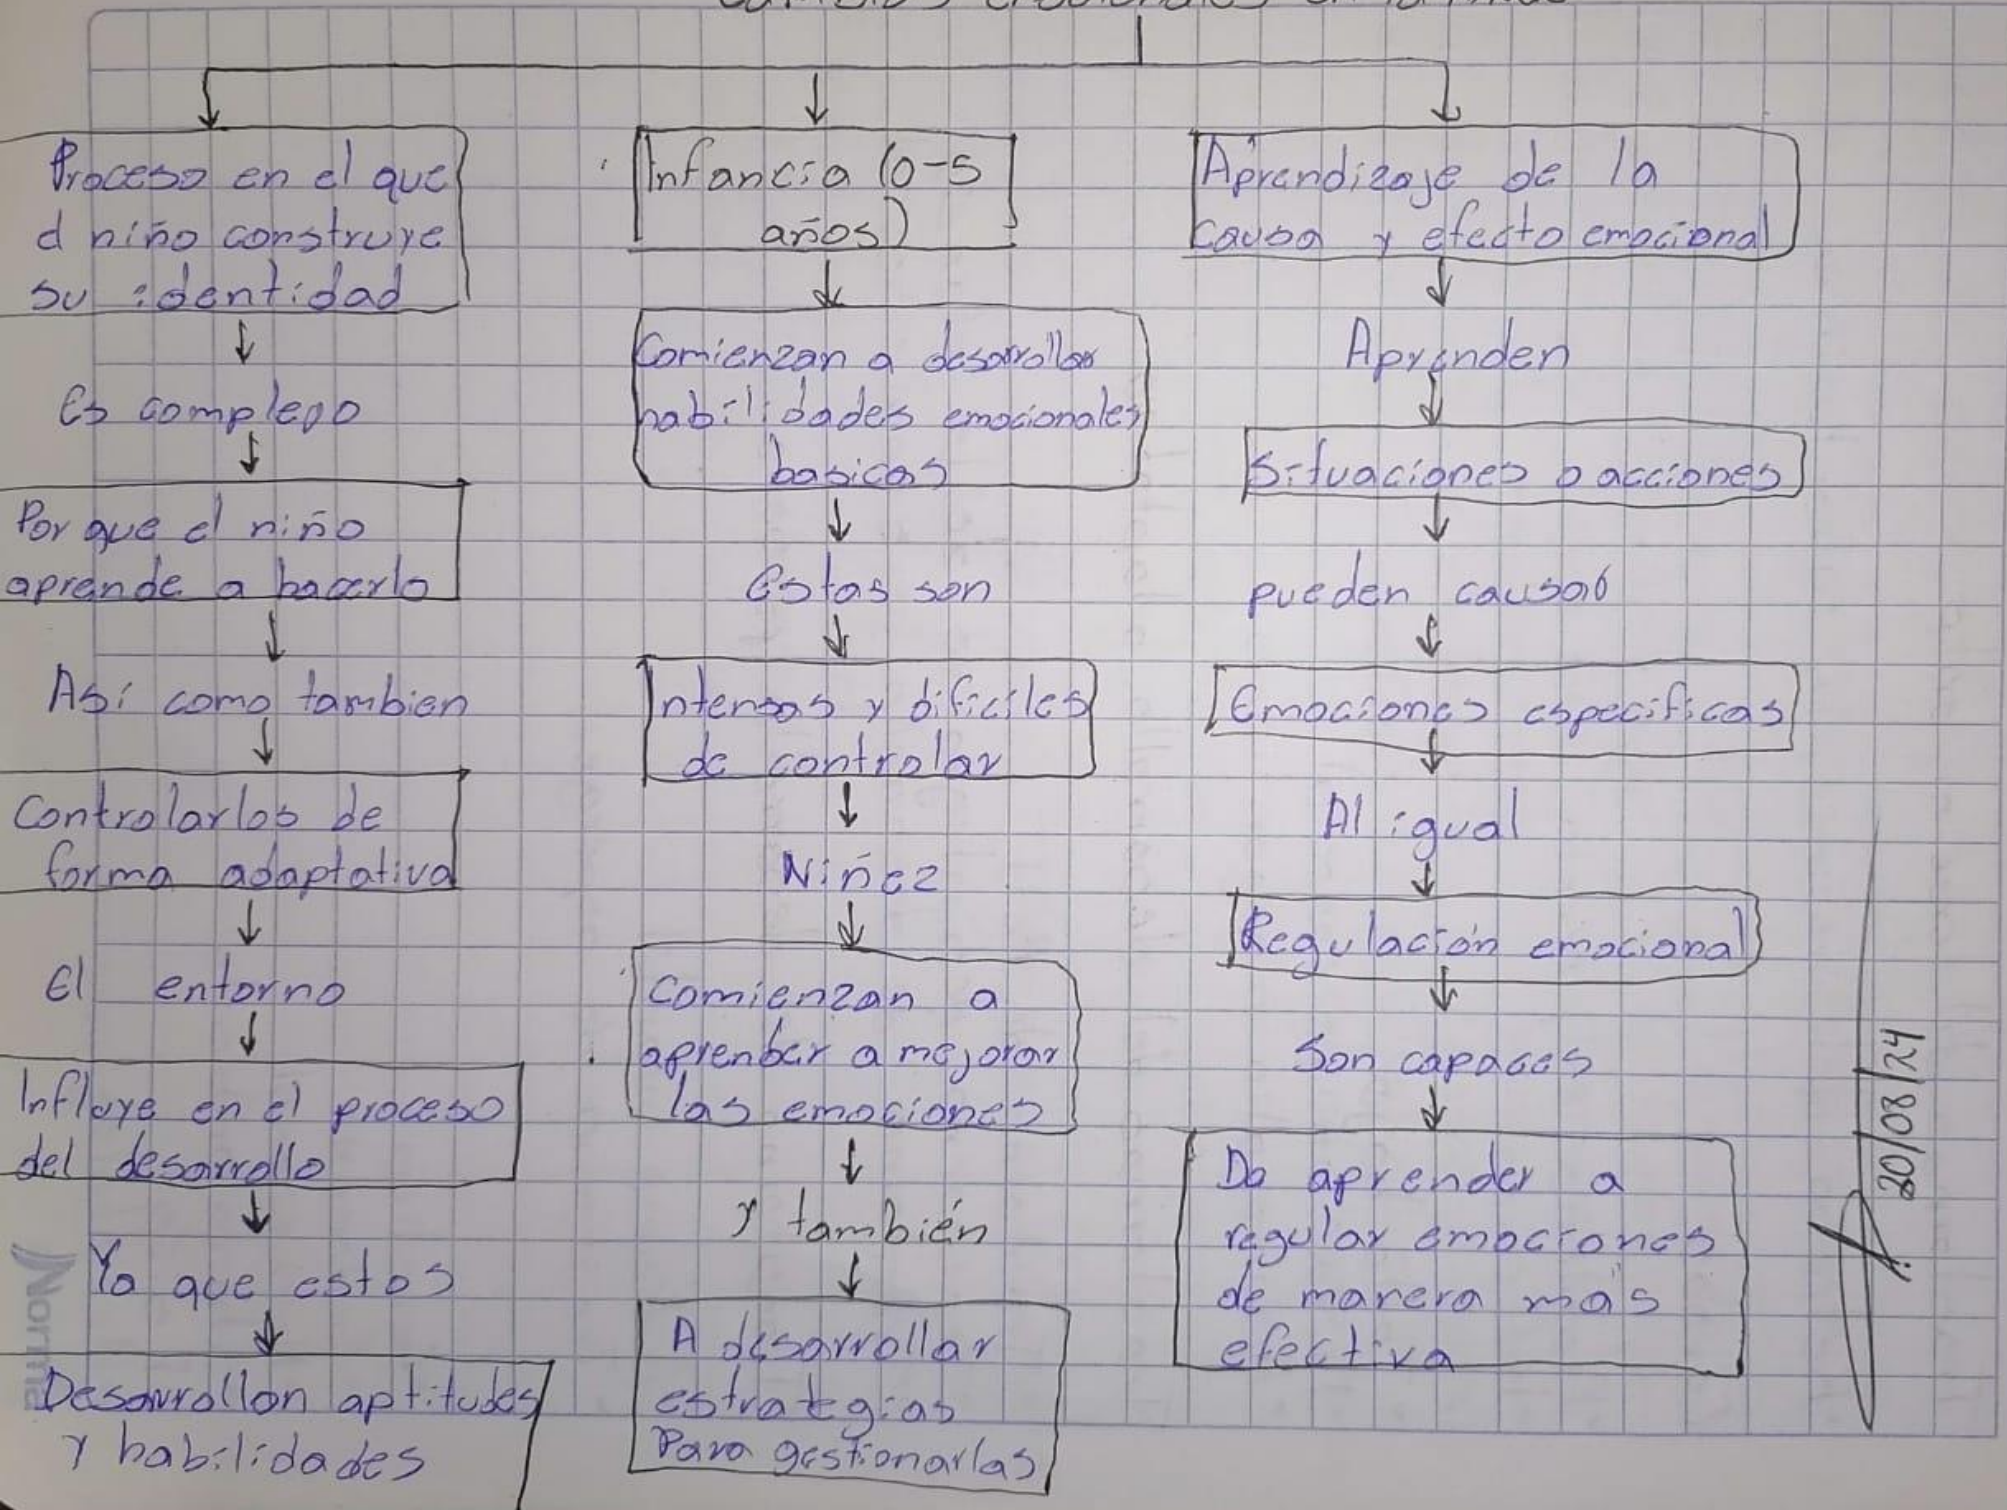 Proceso en el que
el niño construye
su identidad
Es complejo
Por que el niño
aprende a hacerlo
Así como tambien
Controlarlos de
forma adaptativa
El entorno
Influye en el proceso
del desarrollo
Ya que estos
Desarrollan aptitudes
y habilidades
Infancia (0-5
años)
Comienzan a desarrollar
habilidades emocionales
basicas
Estas son
Intensas y dificiles
de controlar
Niñez
Comienzan a
aprender a mejorar
las emociones
y también
A desarrollar
estrategias
Para gestionarlas
Aprendizaje de la
causa y efecto emocional
Aprenden
Situaciones o acciones
pueden causar
Emociones especificas
Al igual
Regulación emocional
Son capaces
De aprender a
regular emociones
de manera más
efectiva
20/08/24
Norma